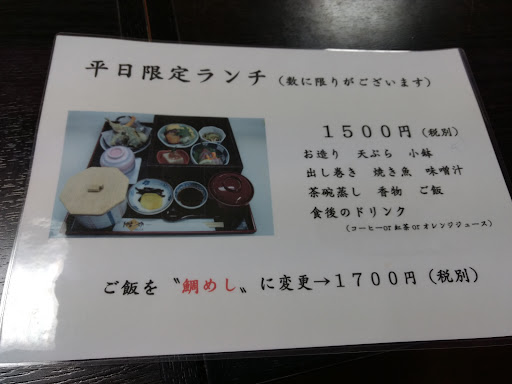 平日限定ランチ（数に限りがございます）
１５００円（税別）
お造り　天ぷら　小鉢
出し巻き　焼き魚　味噌汁
茶碗蒸し　香物　ご飯
食後のドリンク
（コーヒーor紅茶orオレンジジュース）
ご飯を〝鯛めし〟に変更→１７００円（税別）